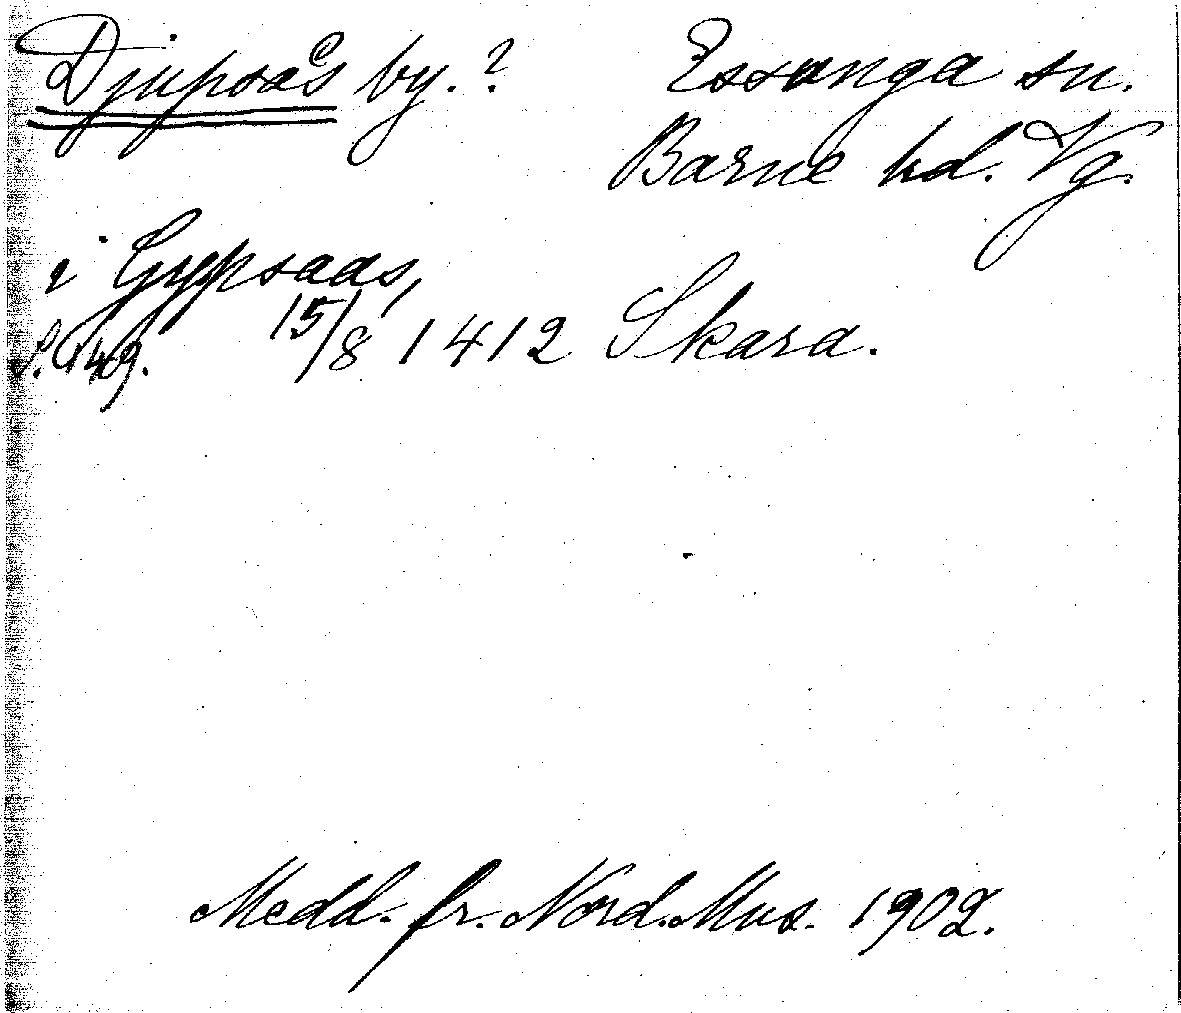 Djupsås by.? Essunga sn.
Barne hd. Vg.
i Gypsaas,
S. 149. 15/8 1412 Skara.
Medd. fr. Nord. Mus. 1902.